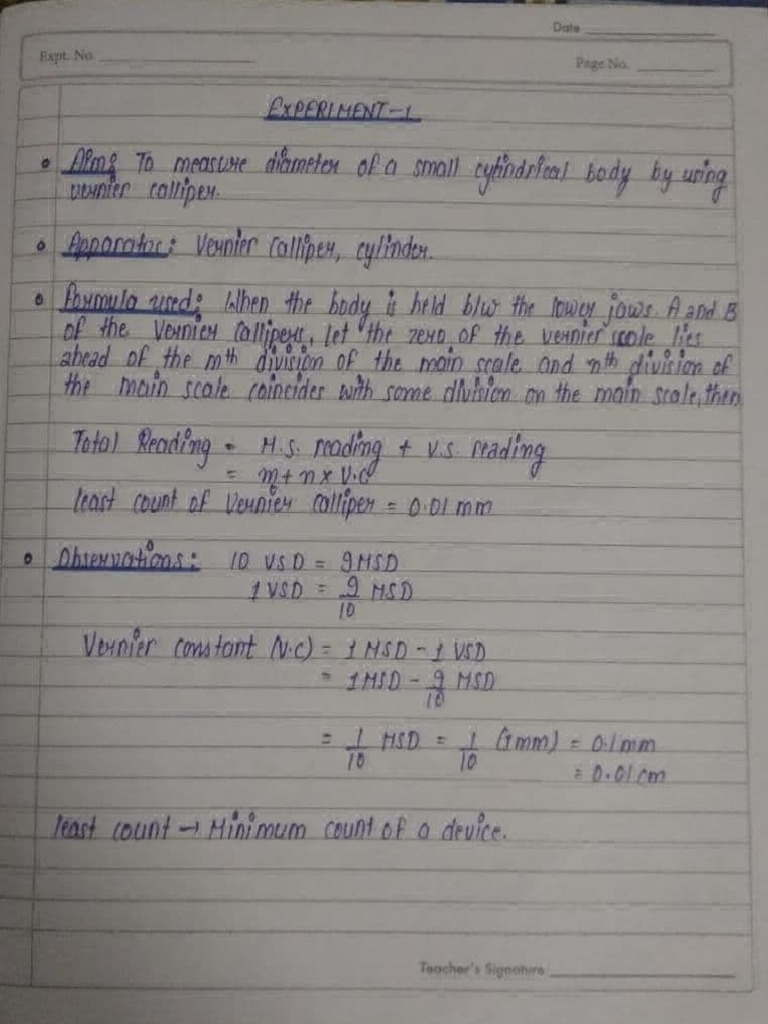 Date
Expt. No.
Page No.
EXPERIMENT-1
Aim: To measure diameter of a small cylindrical body by using
vernier calliper.
Apparatus: Vernier Calliper, cylinder.
Formula used: When the body is held b/w the lower jaws A and B
of the Vernier Callipers, let the zero of the vernier scale lies
ahead of the mth division of the main scale and nth division of
the main scale coincides with some division on the main scale, then
Total Reading = M.S. reading + V.S. reading
= m + n x V.C
least count of Vernier Calliper = 0.01 mm
Observations: 10 VSD = 9 MSD
1 VSD = 9/10 MSD
Vernier constant (V.C) = 1 MSD - 1 VSD
= 1 MSD - 9/10 MSD
= 1/10 MSD = 1/10 (1mm) = 0.1mm
= 0.01 cm
least count → Minimum count of a device.
Teacher's Signature